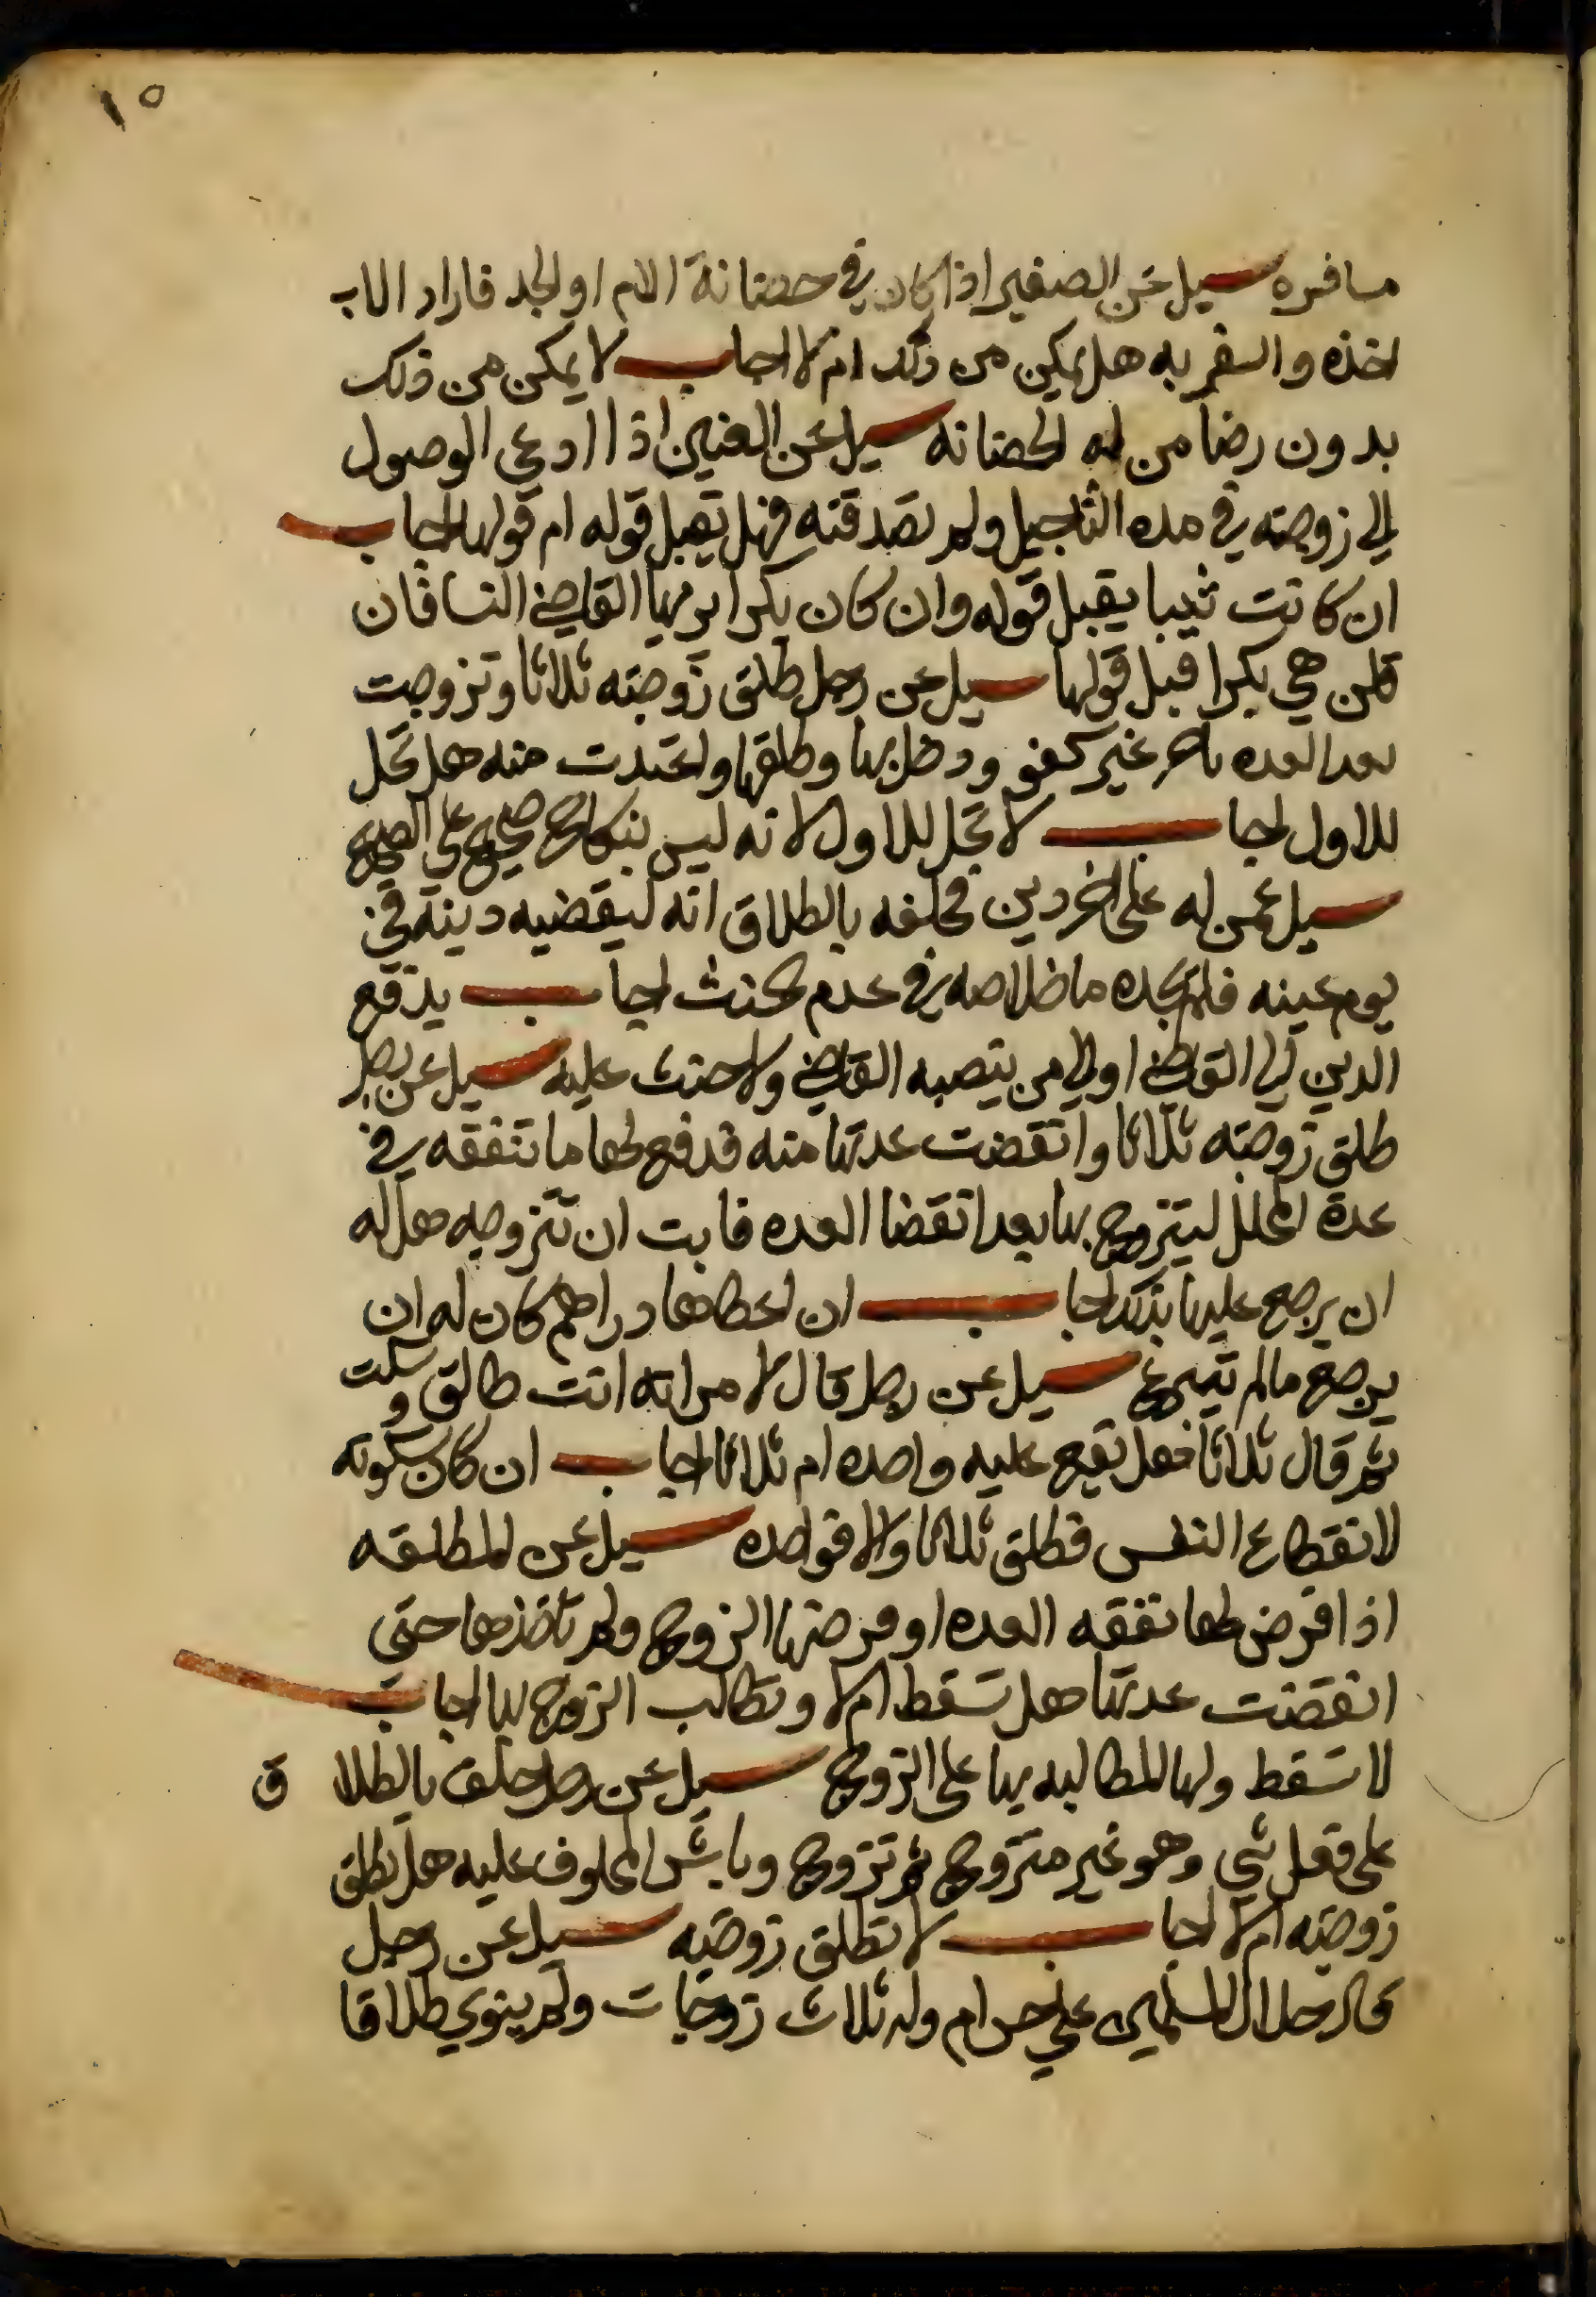 ١٥
مسافره سيل عن الصغير اذا كان في حضانة الام او الجد فاراد الاب
اخذه والسفر به هل يمكن من ذلك ام لا اجاب لا يمكن من ذلك
بدون رضا من له الحضانه سيل عن العنين اذا ادعي الوصول
الي زوجته في مده التاجيل ولم تصدقته فهل يقبل قوله ام قولها اجاب
ان كانت ثيبا يقبل قوله وان كان بكرا يريها القاضي النسا فان
قلن هي بكرا قبل قولها سيل عن رجل طلق زوجته ثلاثا وتزوجت
بعد العده باخر غير كفو ودخل بها وطلقها واعتدت منه هل تحل
للاول اجاب لا تحل للاول لانه ليس بنكاح صحيح علي الصحيح
سيل عمن له على اخر دين فحلفه بالطلاق انه ليقضيه دينه في
يوم عينه فلم يجده ما خلاصه في عدم الحنث اجاب يدفع
الدين الي القاضي او الي من ينصبه القاضي ولا حنث عليه سيل عن رجل
طلق زوجته ثلاثا وانقضت عدتها منه فدفع لها ما تنفقه في
عدة المحلل ليتزوج بها بعد انقضا العده فابت ان تتزوجه هل له
ان يرجع عليها بذلك اجاب ان اعطاها دراهم كان له ان
يرجع مالم تبرع سيل عن رجل قال لامراته انت طالق وسكت
ثم قال ثلاثا فهل يقع عليه واحده ام ثلاثا اجاب ان كان سكوته
لانقطاع النفس فطلق ثلاثا والا فواحده سيل عن المطلقه
اذا افرض لها نفقه العده او فرضها الزوج ولم تاخذها حتي
انقضت عدتها هل تسقط ام لا وتطالب الزوج بها اجاب
لا تسقط ولها المطالبه بها على الزوج سيل عن رجل حلف بالطلا ق
على فعل شي وهو غير متزوج ثم تزوج وباشر المحلوف عليه هل تطلق
زوجته ام لا اجاب لا تطلق زوجته سيل عن رجل
قال حلال المسلمين علي حرام وله ثلاث زوجات ولم ينوي طلاقا